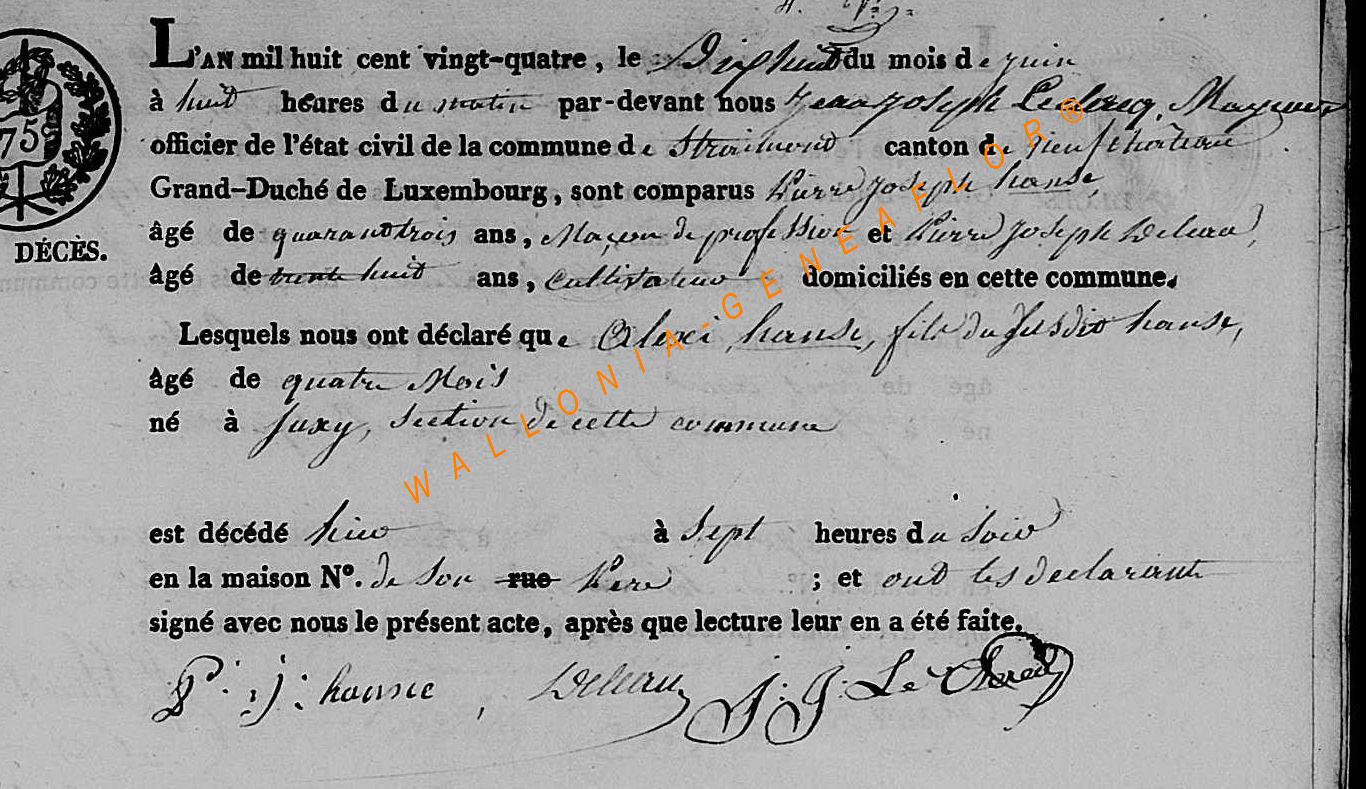 75
DÉCÈS.
L'AN mil huit cent vingt-quatre, le Dix huit du mois de juin
à huit heures du matin par-devant nous Jean Joseph Leclercq, Mayeur
officier de l'état civil de la commune de Straimont canton de Neufchateau
Grand-Duché de Luxembourg, sont comparus Pierre Joseph hanse,
âgé de quarante trois ans, Maçon de profession et Pierre Joseph Deleau,
âgé de trente huit ans, Cultivateur domiciliés en cette commune.
Lesquels nous ont déclaré que Alexi hanse, fils du susdit hanse,
âgé de quatre Mois
né à Suxy, section de cette commune
est décédé hier à Sept heures du Soir
en la maison N°. de Son rue Pere ; et ont les declarants
signé avec nous le présent acte, après que lecture leur en a été faite.
P. J. hansse, Deleau J. J. Le Clercq
WALLONIA-GENEAFLOR®